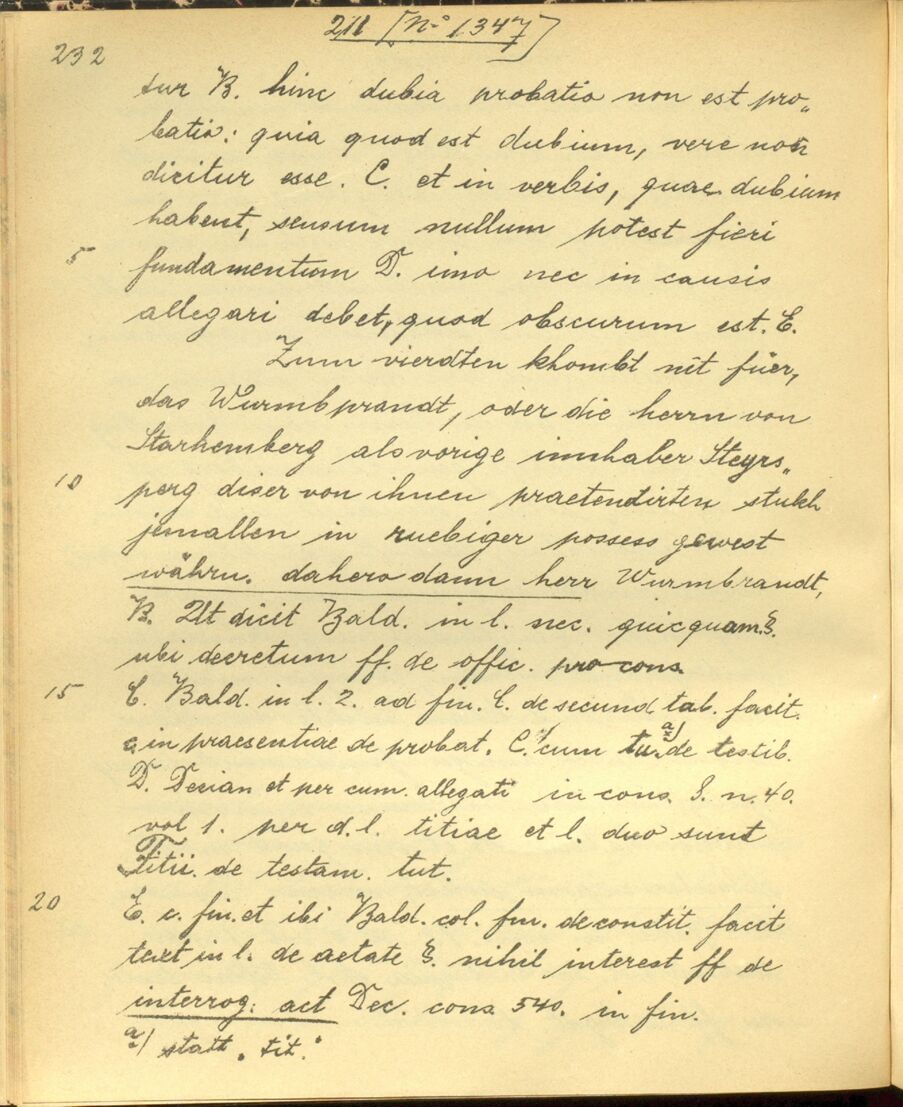 211 [No 1347]
232
tur B. hinc dubia probatio non est pro„
batio: quia quod est dubium, vere non
dicitur esse. C. et in verbis, quae dubium
habent, sensum nullum potest fieri
5 fundamentum D. imo nec in causis
allegari debet, quod obscurum est. E.
Zum vierdten khombt nit füer,
das Wurmbprandt, oder die herrn von
Starhemberg als vorige innhaber Steyrs„
10 perg diser von ihnen praetendirten stukh
jemallen in ruebiger possess gewest
währn. dahero dann herr Wurmbrandt,
B. Ut dicit Bald. in l. nec. quicquam. §.
ubi decretum ff. de offic. procons.
15 C. Bald. in l. 2. ad fin. C. de secund tab. facit.
c. in praesentiae de probat. C. cum tu. a) de testib.
D. Decian et per eum. allegati in cons. 8. n. 40.
vol 1. per d. l. titiae et l. duo sunt
Titii. de testam. tut.
20 E. c. fin. et ibi Bald. col. fin. de constit. facit
text in l. de aetate §. nihil interest ff de
interrog: act Dec. cons. 540. in fin.
a) statt „tit."